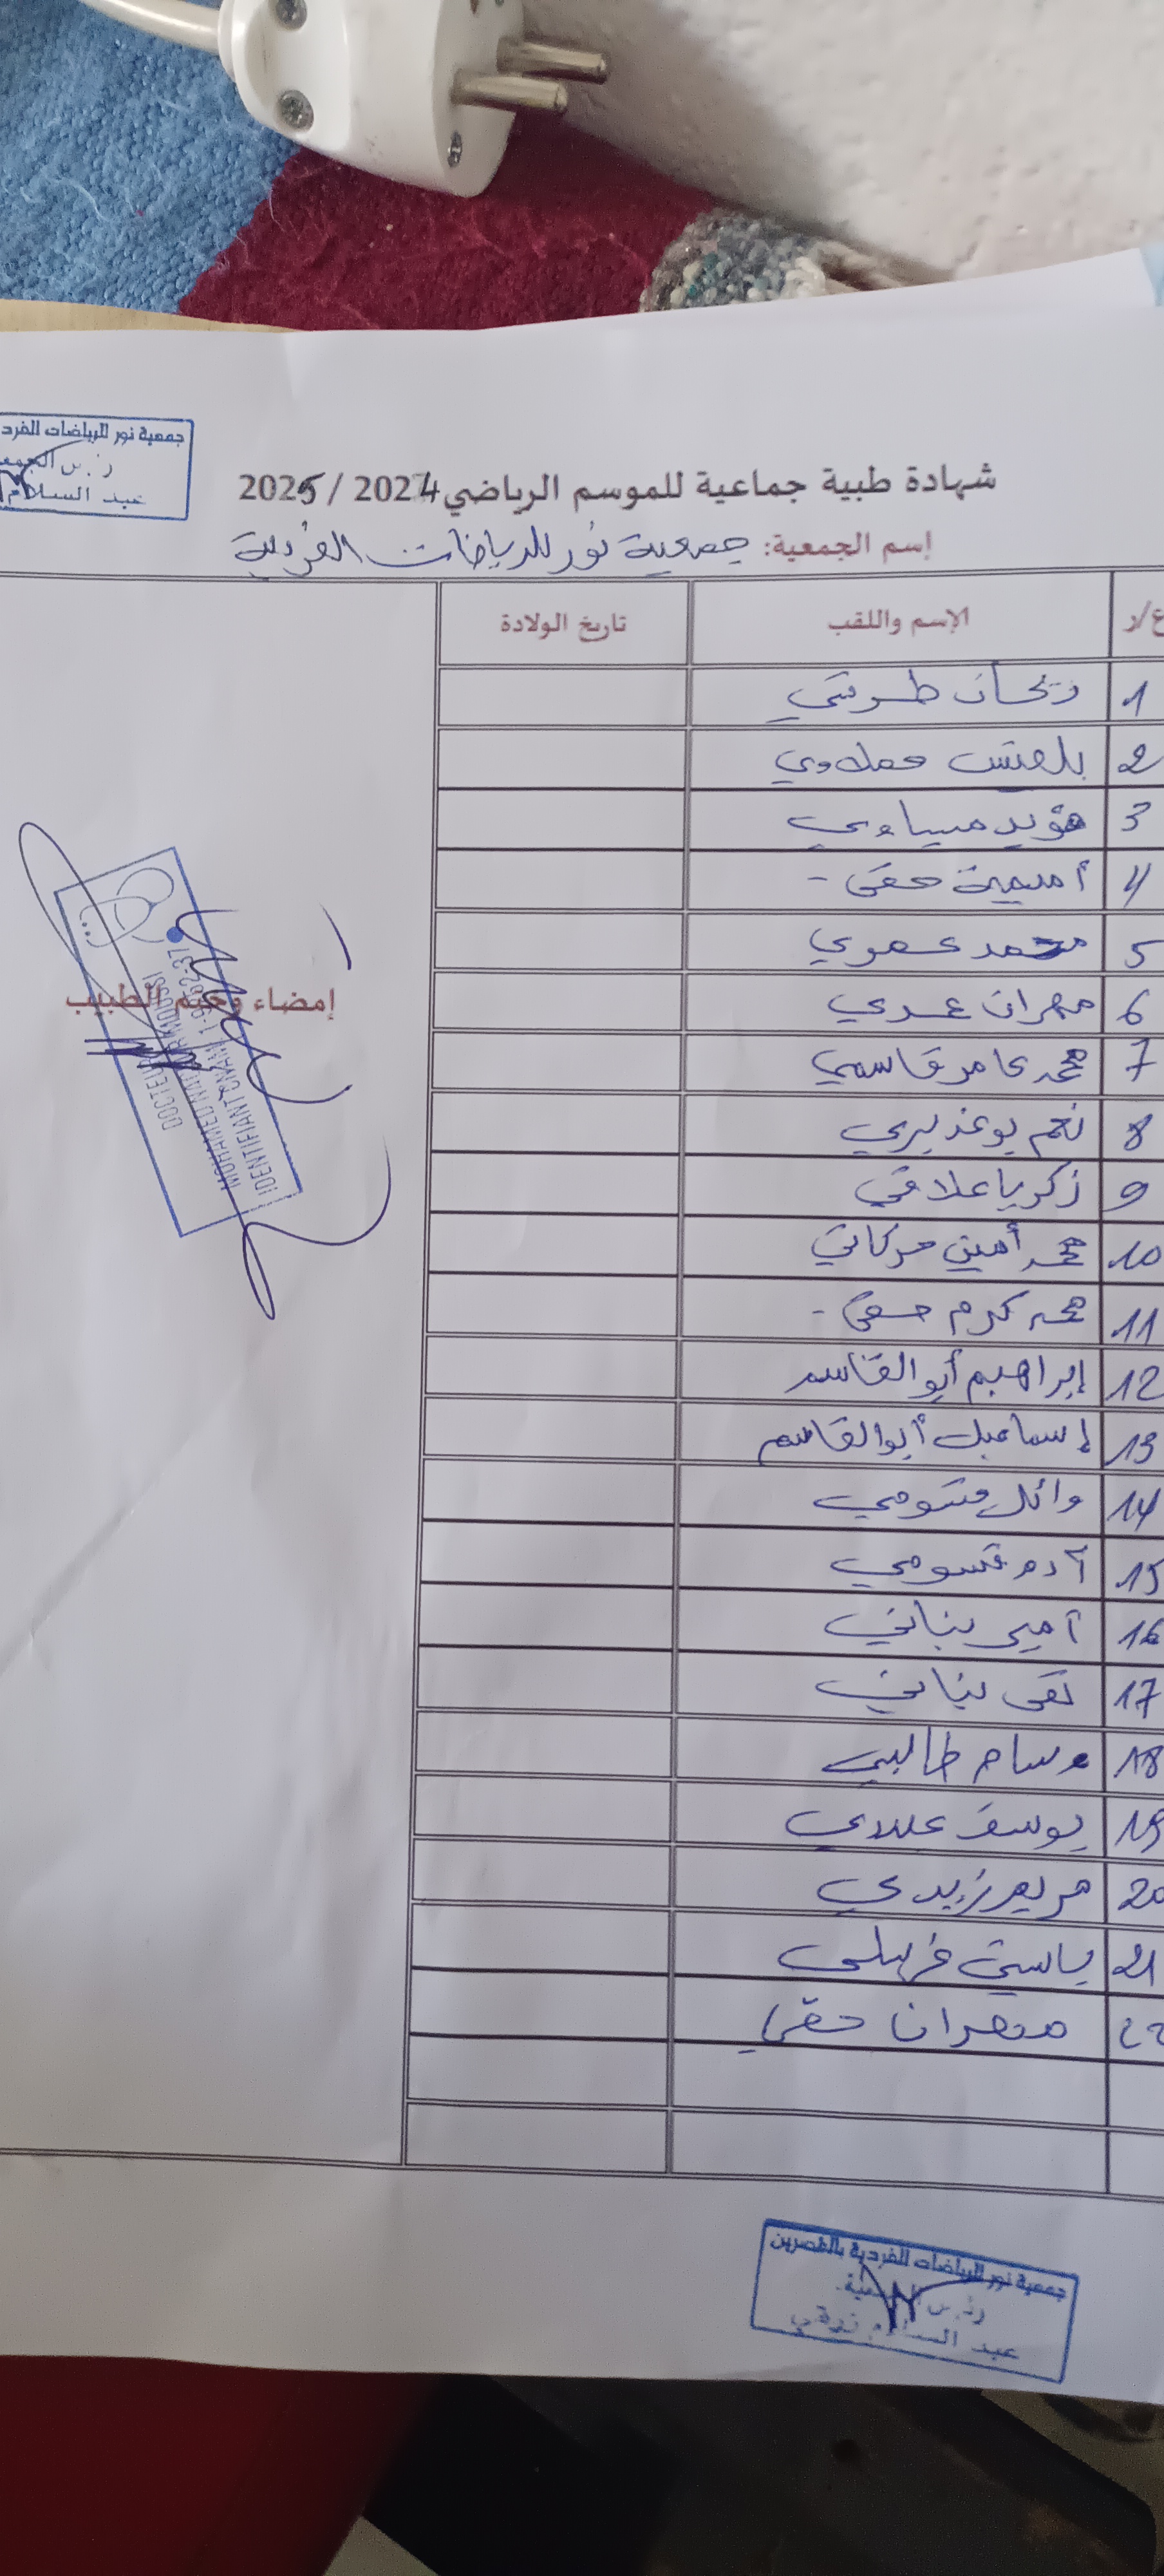 جمعية نور للرياضات الفرد
عبد السلام
شهادة طبية جماعية للموسم الرياضي 2024 / 2025
إسم الجمعية: جمعية نور للرياضات الفردية
ع/ر الإسم واللقب تاريخ الولادة
1
2 بلقيس
3 مؤيد عيساوي
4 أميمة حقي -
5 محمد عمري
6 مهران عمري
7 محمد عامر قاسمي
8 نعم بوعذيري
9 زكرياء علاقي
10 محمد أمين بركاتي
11 محمد كرم حقي -
12 إبراهيم أبوالقاسم
13 إسماعيل أبوالقاسم
14 وائل قسومي
15 آدم قسومي
16 أمير بناني
17 تقى بناني
18 وسام طالبي
19 يوسف
20 مريم زيدي
21 ياسين
22 مهران حقي
إمضاء وختم الطبيب
DOCTEUR
MOHAMED
IDENTIFIANT CNAM
جمعية نور للرياضات الفردية بالقصرين
عبد السلام